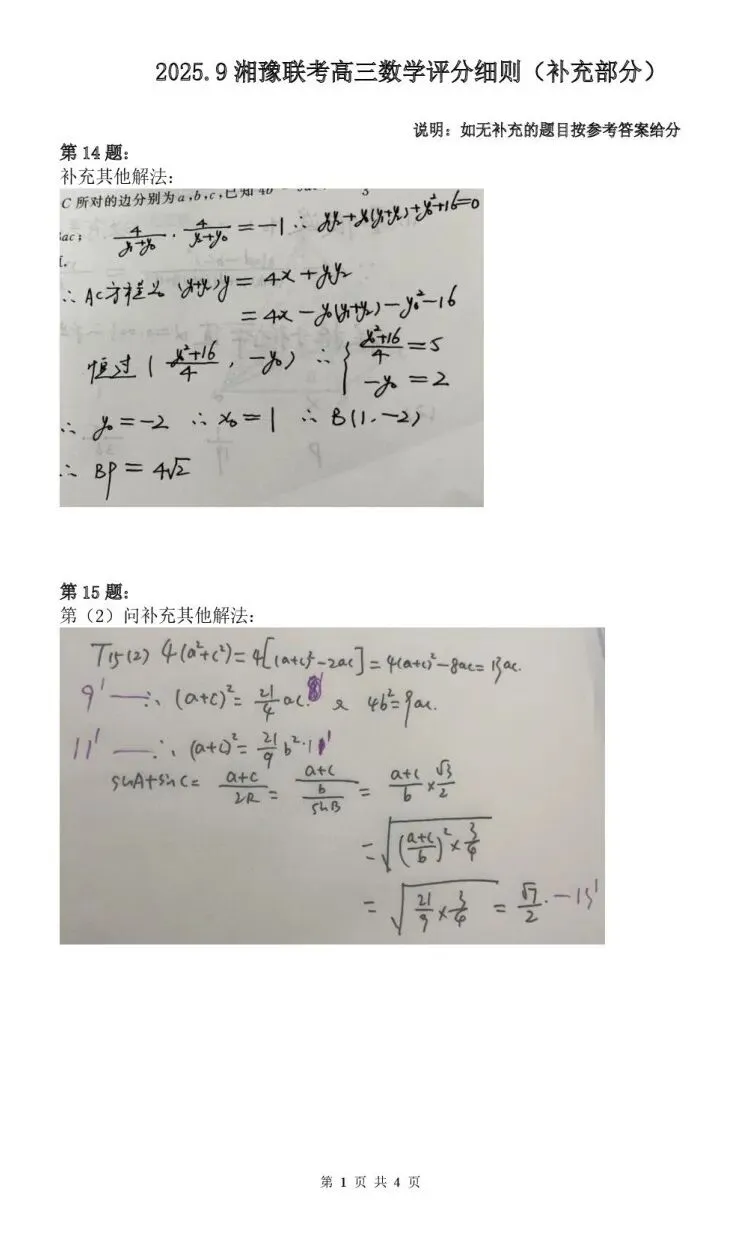 2025.9 湘豫联考高三数学评分细则（补充部分）
说明：如无补充的题目按参考答案给分
第 14 题：
补充其他解法：
C 所对的边分别为a,b,c,已知
ac;
4/(y₁+y₀) · 4/(y₂+y₀) = -1 ∴ y₁y₂+y₀(y₁+y₂)+y₀²+16=0
∴ AC方程为 (y₁+y₂)y = 4x + y₁y₂
= 4x - y₀(y₁+y₂) - y₀² - 16
恒过 ( (y₀²+16)/4 , -y₀ ) ∴ { (y₀²+16)/4 = 5
-y₀ = 2
∴ y₀ = -2 ∴ x₀ = 1 ∴ B(1,-2)
∴ BP = 4√2
第 15 题：
第（2）问补充其他解法：
T15(2) 4(a²+c²)=4[(a+c)²-2ac]=4(a+c)²-8ac=13ac.
9' —∴ (a+c)²= 21/4 ac. 又 4b²=9ac.
11' —∴ (a+c)²= 21/9 b².
sinA+sinC= (a+c)/2R = (a+c)/(b/sinB) = (a+c)/b × √3/2
= √(((a+c)/b)² × 3/4)
= √(21/9 × 3/4) = √7/2. —13'
第 1 页 共 4 页